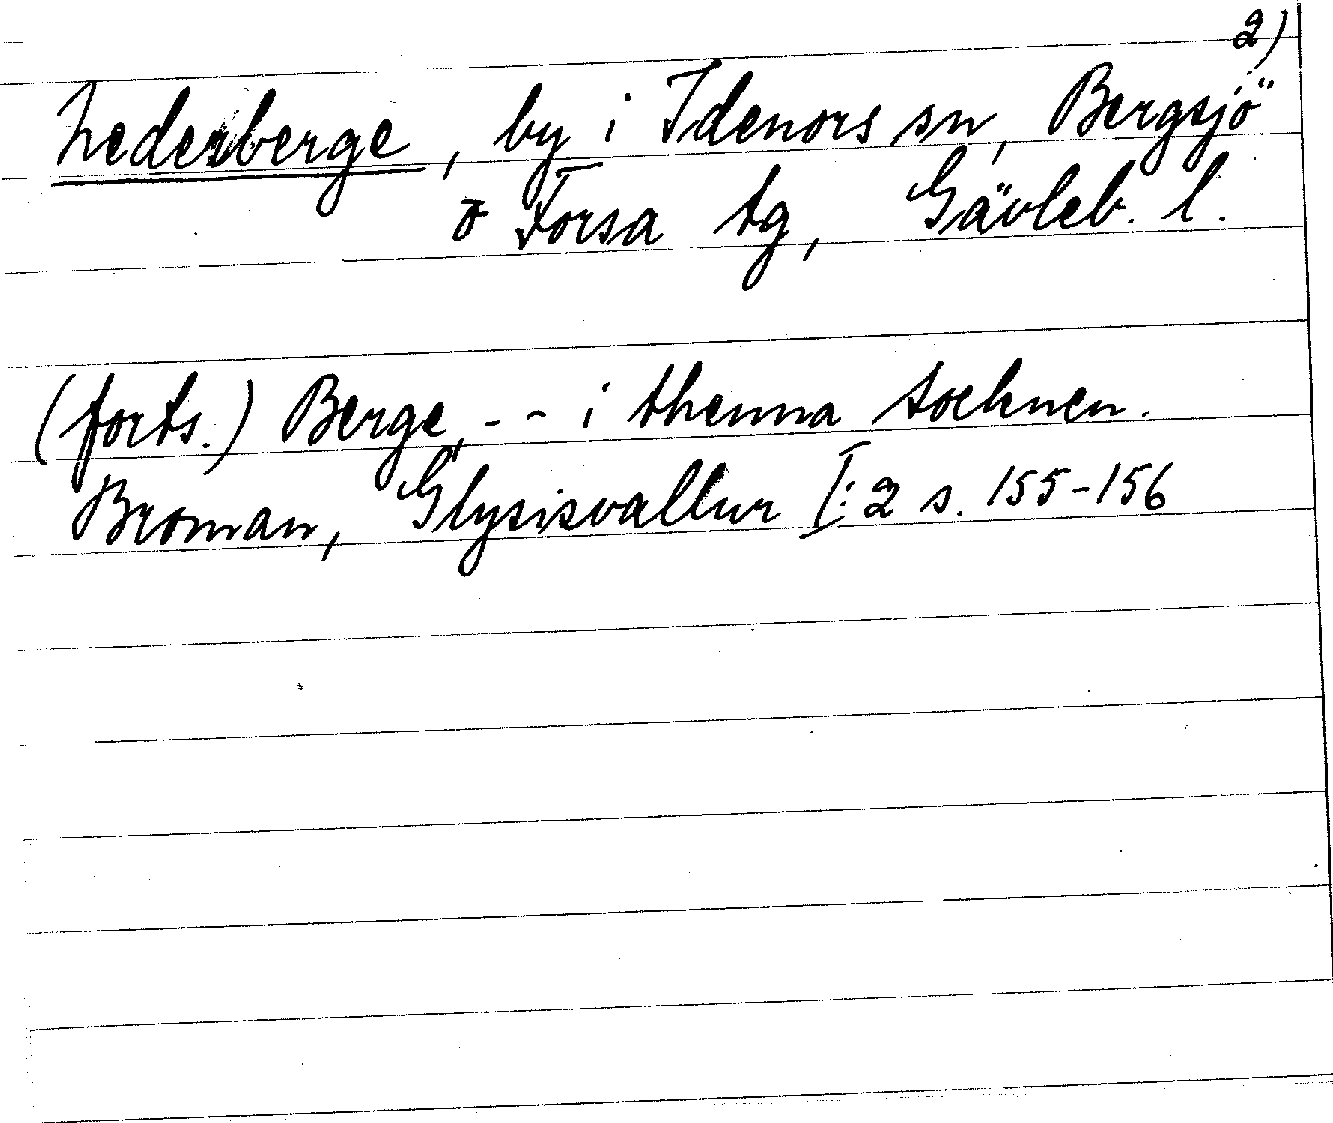 2)
Nederberge, by i Idenors sn, Bergsjö
o Forsa tg, Gävleb. l.
(forts.) Berge, - - i thenna sochnen.
Broman, Glysisvallur I:2 s. 155-156